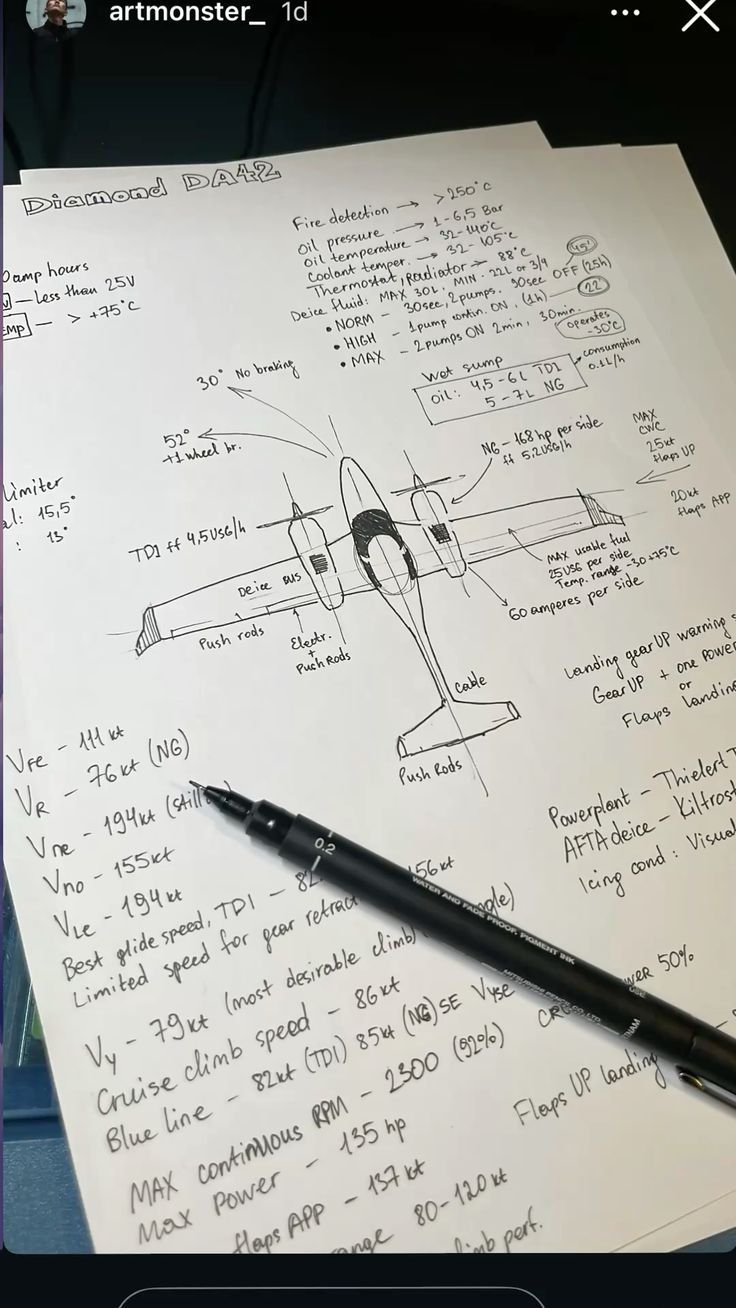 artmonster_ 1d
Diamond DA42
amp hours
Less than 25V
— > +75°C
Fire detection → >250°C
Oil pressure → 1-6,5 Bar
Oil temperature → 32-140°C
Coolant temper. → 32-105°C
Thermostat, Radiator → 88°C
Deice fluid: MAX 30L, MIN. 22L or 3/9
• NORM — 30sec, 2pumps. 90sec OFF (2,5h) 45'
• HIGH — 1 pump contin. ON, (1h) — 22'
• MAX — 2 pumps ON 2min, 30min.
operates
-30°C
Wet sump
Oil: 4,5-6L TDI
5-7L NG
consumption
0.1L/h
30° No braking
52°
+1 wheel br.
limiter
al: 15,5°
: 13°
NG-168hp per side
ff 5,2USG/h
MAX
CWC
25kt
flaps UP
20kt
flaps APP
TDI ff 4,5USG/h
MAX usable fuel
25USG per side
Temp. range -30+75°C
60 amperes per side
Deice BUS
Push rods
Electr.
+
Push Rods
Cable
Push Rods
Landing gear UP warning
Gear UP + one Power
or
Flaps landin
VFE - 111kt
VR - 76kt (NG)
Vne - 194kt (still
Vno - 155kt
VLE - 194kt
Best glide speed, TDI - 82
Limited speed for gear retract 156kt
Vy - 79kt (most desirable climb) ngle)
Cruise climb speed - 86kt
Blue line - 82kt (TDI) 85kt (NG) SE Vyse
MAX continuous RPM - 2300 (92%)
Max Power - 135 hp
flaps APP - 137kt
ange 80-120kt
limb perf.
Powerplant - Thielert
AFTA deice - Kilfrost
Icing cond: Visual
CR WER 50%
Flaps UP landing
0.2
WATER AND FADE PROOF, PIGMENT INK
MITSUBISHI PENCIL CO., LTD.